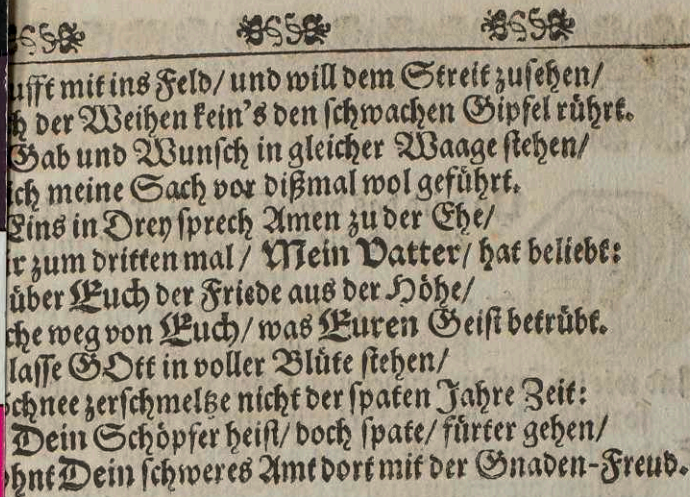 mit ins Feld/ und will dem Streit zusehen/
der Weihen kein's den schwachen Gipfel rührt.
Gab und Wunsch in gleicher Waage stehen/
meine Sach vor dißmal wol geführt.
Eins in Drey sprech Amen zu der Ehe/
zum dritten mal/ Mein Vatter/ hat beliebt:
über Euch der Friede aus der Höhe/
weg von Euch/ was Euren Geist betrübt.
lasse GOtt in voller Blüte stehen/
zerschmeltze nicht der spaten Jahre Zeit:
Dein Schöpfer heist/ doch spate/ fürter gehen/
Dein schweres Amt dort mit der Gnaden-Freud.